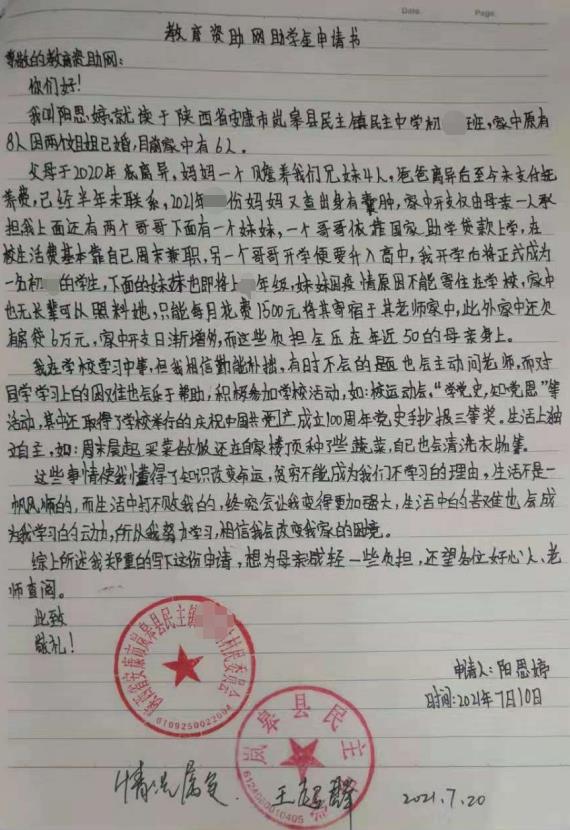 Date.	Page.
教育资助网助学金申请书
尊敬的教育资助网:
你们好!
我叫阳思婷,就读于陕西省安康市岚皋县民主镇民主中学初 班,家中原有
8人因两个姐姐已婚,目前家中有6人。
父母于2020年底离异,妈妈一个人赡养我们兄妹4人,爸爸离异后至今未支付抚
养费,已经半年未联系,2021年 份妈妈又查出身有囊肿,家中开支仅由母亲一人承
担我上面还有两个哥哥下面有一个妹妹,一个哥哥依靠国家助学贷款上学,在
校生活费基本靠自己周末兼职,另一个哥哥开学便要升入高中,我开学后将正式成为
一名初 的学生,下面的妹妹也即将上 年级,妹妹因疫情原因不能寄住在学校,家中
也无长辈可以照料她,只能每月花费1500元将其寄宿于其老师家中,此外家中还欠
有房贷6万元,家中开支日渐增多,而这些负担全压在年近50的母亲身上。
我在学校学习中等,但我相信勤能补拙,有时不会的题也会主动问老师,而对
同学学习上的困难也会乐于帮助,积极参加学校活动,如:校运动会,“学党史,知党恩”等
活动,其中还取得了学校举行的庆祝中国共产党成立100周年党史手抄报三等奖。生活上独
立自主,如:周末晨起,买菜做饭还在自家楼顶种了些蔬菜,自己也会清洗衣物等。
这些事情使我懂得了知识改变命运,贫穷不能成为我们不学习的理由,生活不是一
帆风顺的,而生活中打不败我的,终究会让我变得更加强大,生活中的苦难也会成
为我学习的动力,所以我努力学习,相信我会改变我家的困境。
综上所述我郑重的写下这份申请,想为母亲减轻一些负担,还望各位好心人、老
师查阅。
此致
敬礼!
申请人:阳思婷
时间:2021年7月10日
陕西省安康市岚皋县民主镇 村民委员会
6109250022094
岚皋县民主
情况属实.
2021.7.20